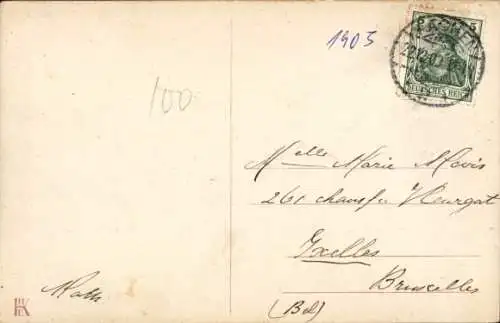 1905
100
5 5
BREMEN
DEUTSCHES REICH
Melle Marie Movis
261 chaussée Vleurgat
Ixelles
Bruxelles
(Bel)